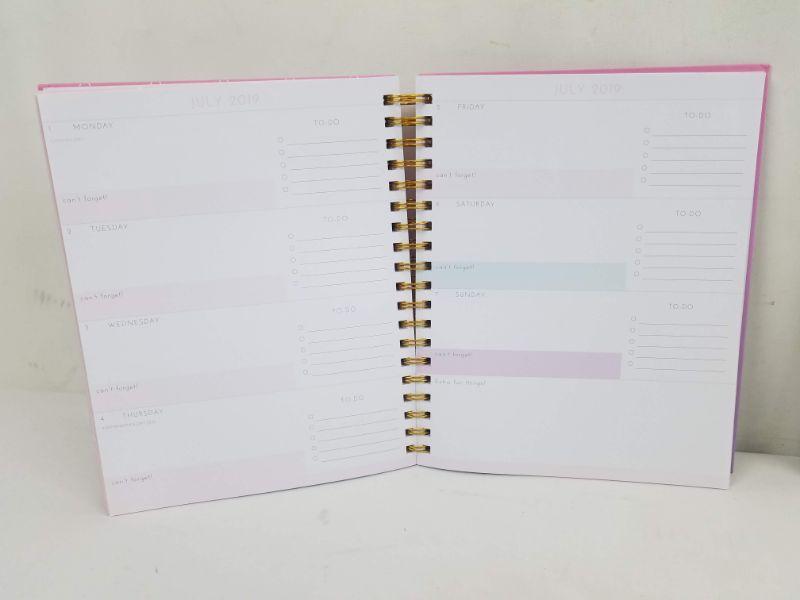 JULY 2019
1 MONDAY
TO-DO
can't forget!
2 TUESDAY
can't forget!
3 WEDNESDAY
TO-DO
can't forget!
4 THURSDAY
TO-DO
can't forget!
JULY 2019
5 FRIDAY
TO-DO
can't forget!
6 SATURDAY
TO-DO
can't forget!
7 SUNDAY
TO-DO
can't forget!